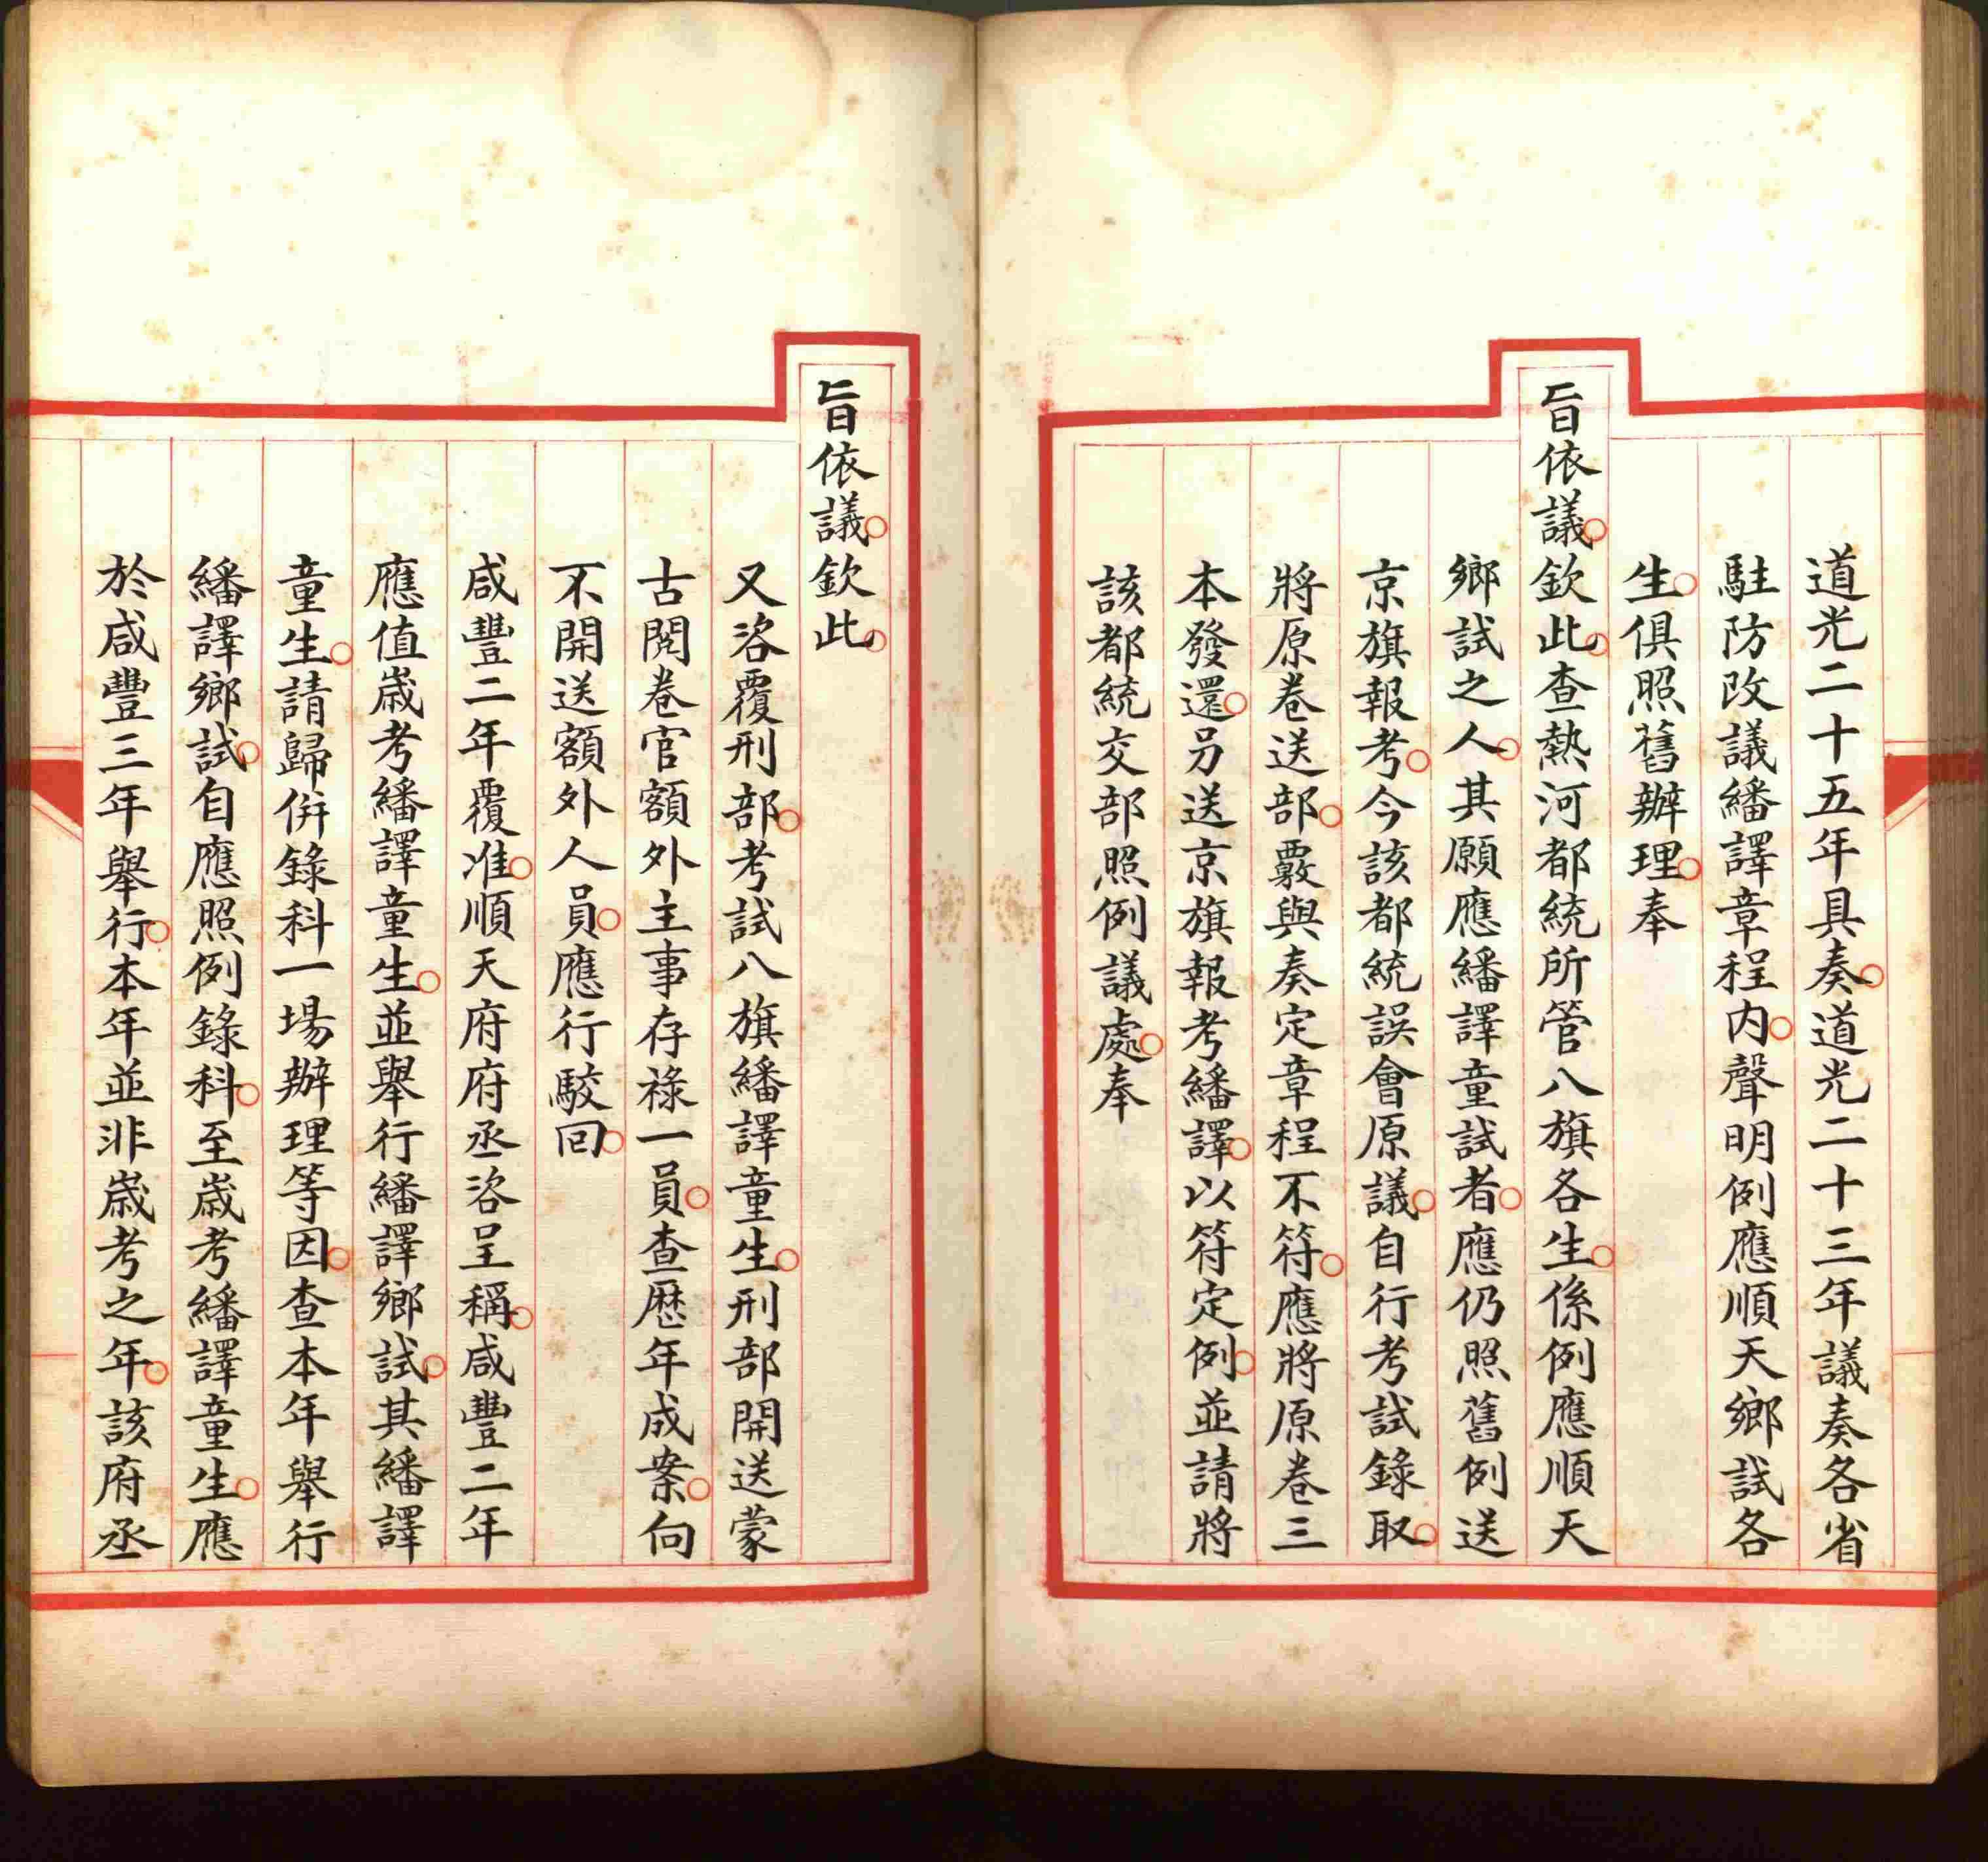 道光二十五年具奏。道光二十三年議奏各省
駐防改議繙譯章程内。聲明例應順天鄉試各
生。俱照舊辦理。奉
旨依議。欽此。查熱河都統所管八旗各生。係例應順天
鄉試之人。其願應繙譯童試者。應仍照舊例送
京旗報考。今該都統誤會原議。自行考試錄取。
將原卷送部。覈與奏定章程不符。應將原卷三
本發還。另送京旗報考繙譯。以符定例。並請將
該都統交部照例議處。奉
旨依議。欽此。
又咨覆刑部。考試八旗繙譯童生。刑部開送蒙
古閱卷官額外主事存祿一員。查歷年成案。向
不開送額外人員。應行駮回。
咸豐二年覆准。順天府府丞咨呈稱。咸豐二年
應值嵗考繙譯童生。並舉行繙譯鄉試。其繙譯
童生。請歸併錄科一場辦理等因。查本年舉行
繙譯鄉試。自應照例錄科。至嵗考繙譯童生。應
於咸豐三年舉行。本年並非嵗考之年。該府丞